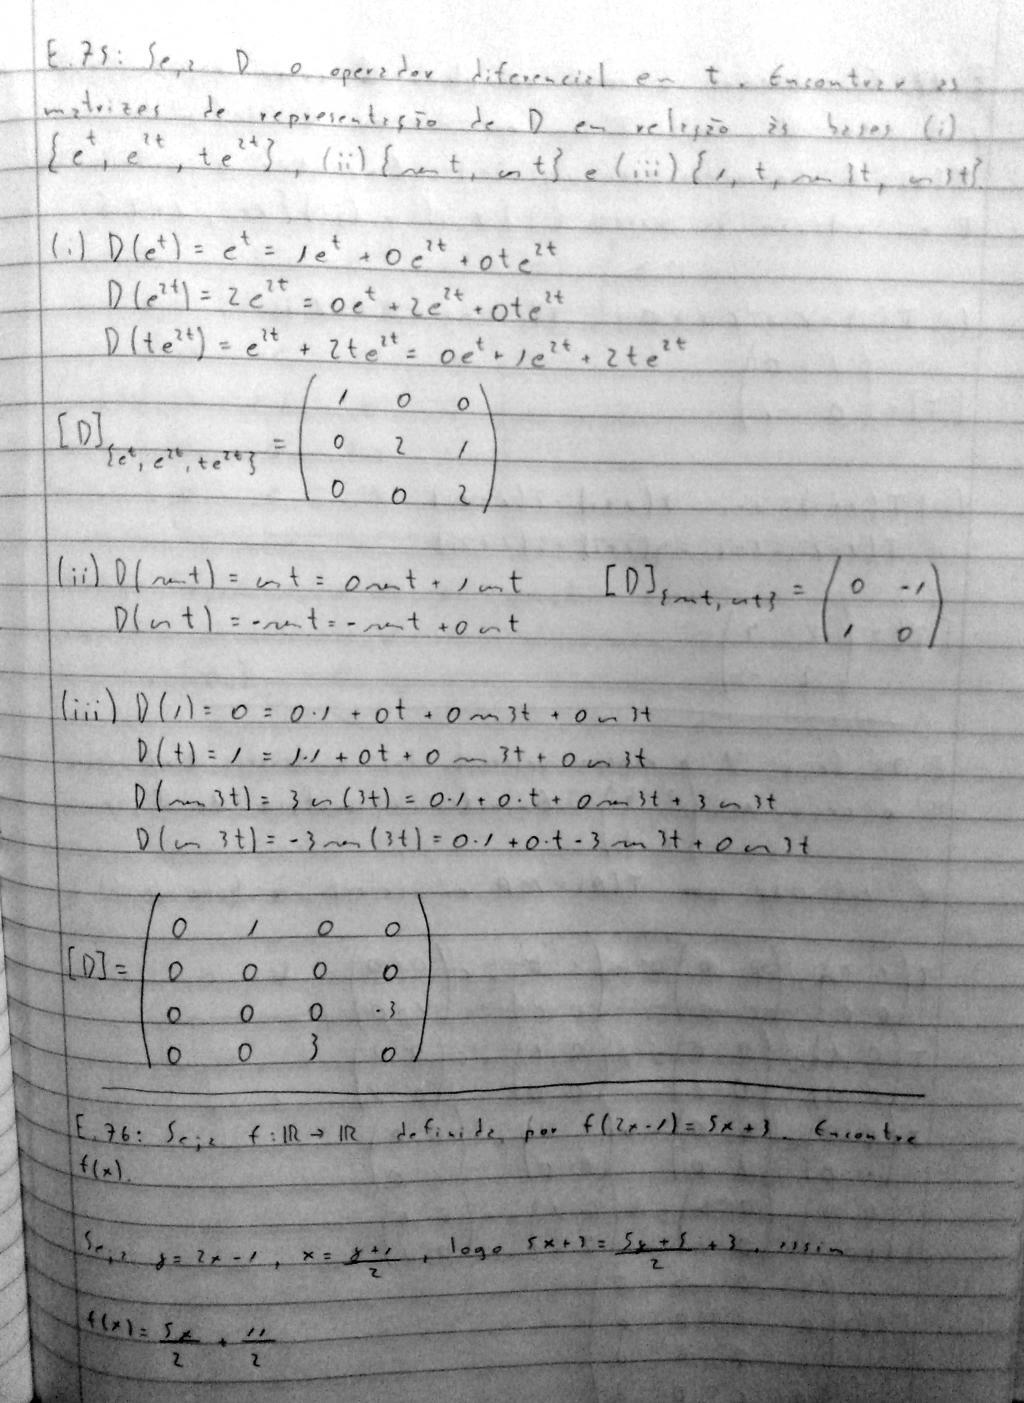 E.75: Seja D o operador diferencial em t. Encontrar as
matrizes de representação de D em relação às bases (i)
{e^t, e^{2t}, te^{2t}}, (ii) {sen t, cos t} e (iii) {1, t, sen 3t, cos 3t}.
(i) D(e^t) = e^t = 1e^t + 0e^{2t} + 0te^{2t}
D(e^{2t}) = 2e^{2t} = 0e^t + 2e^{2t} + 0te^{2t}
D(te^{2t}) = e^{2t} + 2te^{2t} = 0e^t + 1e^{2t} + 2te^{2t}
1 0 0
[D]_{{e^t, e^{2t}, te^{2t}}} = ( 0 2 1 )
0 0 2
(ii) D(sen t) = cos t = 0 sen t + 1 cos t [D]_{{sen t, cos t}} = ( 0 -1
D(cos t) = -sen t = -sen t + 0 cos t 1 0 )
(iii) D(1) = 0 = 0·1 + 0t + 0 sen 3t + 0 cos 3t
D(t) = 1 = 1·1 + 0t + 0 sen 3t + 0 cos 3t
D(sen 3t) = 3 cos (3t) = 0·1 + 0·t + 0 sen 3t + 3 cos 3t
D(cos 3t) = -3 sen (3t) = 0·1 + 0·t - 3 sen 3t + 0 cos 3t
0 1 0 0
[D] = ( 0 0 0 0 )
0 0 0 -3
0 0 3 0
E.76: Seja f: ℝ → ℝ definida por f(2x-1) = 5x+3. Encontre
f(x).
Seja y = 2x-1, x = (y+1)/2, logo 5x+3 = (5y+5)/2 + 3, assim
f(x) = 5x/2 + 11/2